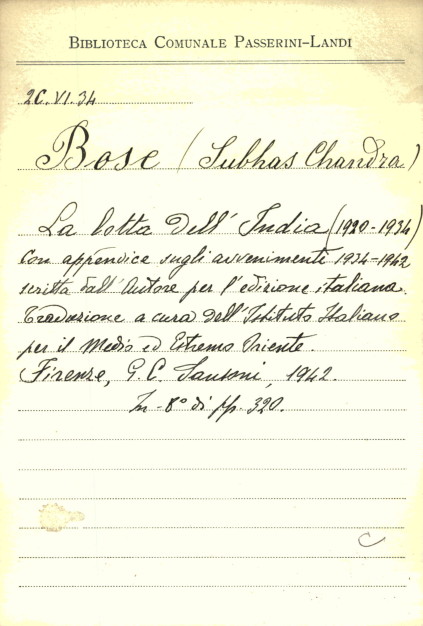 BIBLIOTECA COMUNALE PASSERINI-LANDI
2C.VI.34
Bose (Subhas Chandra)
La lotta dell'India (1920-1934)
con appendice sugli avvenimenti 1934-1942
scritta dall'Autore per l'edizione italiana.
Traduzione a cura dell'Istituto Italiano
per il Medio ed Estremo Oriente.
Firenze, G. C. Sansoni, 1942.
In-8° di pp. 320.
C